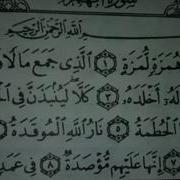 سُورَةُ الهُمَزَة
بِسْمِ اللَّهِ الرَّحْمَٰنِ الرَّحِيمِ
هُمَزَةٍ لُّمَزَةٍ ١ ٱلَّذِى جَمَعَ مَالًا
أَخْلَدَهُۥ ٣ كَلَّا لَيُنۢبَذَنَّ فِى
ٱلْحُطَمَةُ ٥ نَارُ ٱللَّهِ ٱلْمُوقَدَةُ
٧ إِنَّهَا عَلَيْهِم مُّؤْصَدَةٌ ٨ فِى عَمَدٍ